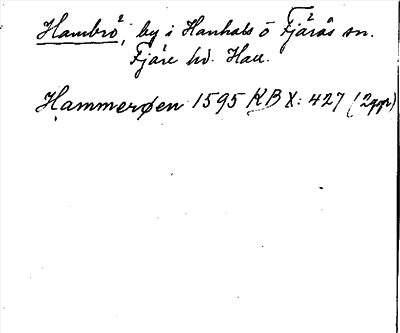 Hambro², by i Hanhals o Fjärås² sn.
Fjäre hd. Hall.
Hammerøen 1595 KB X: 427 (2ggr)